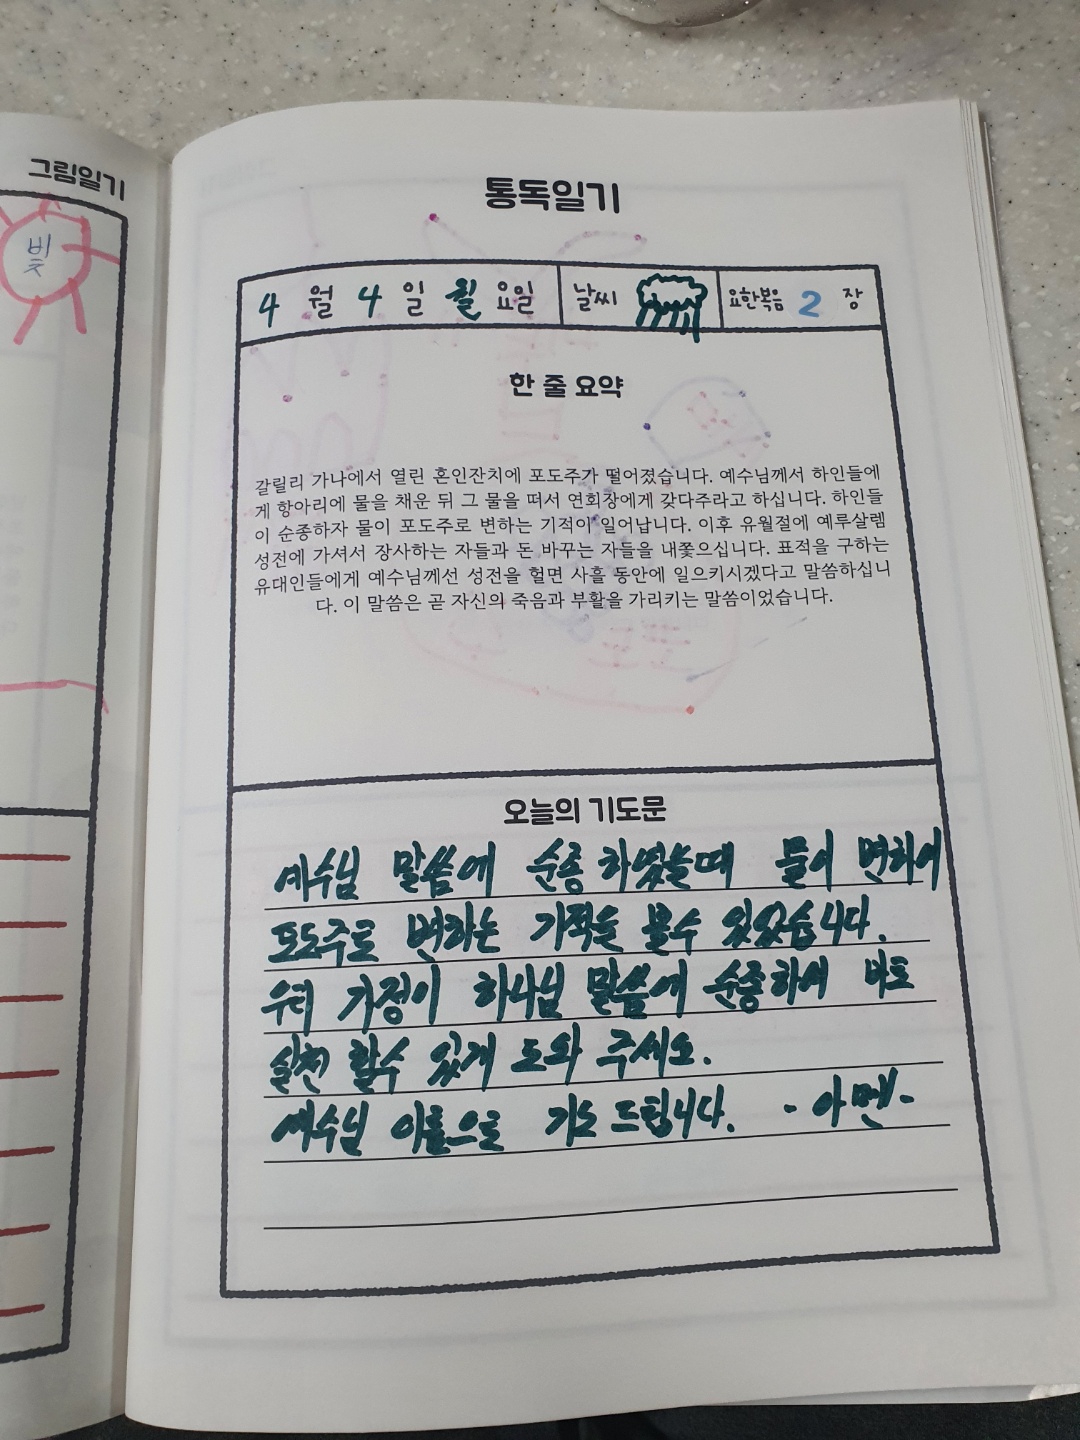 그림일기
빛
통독일기
4 월 4 일 월 요일 날씨 요한복음 2 장
한 줄 요약
갈릴리 가나에서 열린 혼인잔치에 포도주가 떨어졌습니다. 예수님께서 하인들에
게 항아리에 물을 채운 뒤 그 물을 떠서 연회장에게 갖다주라고 하십니다. 하인들
이 순종하자 물이 포도주로 변하는 기적이 일어납니다. 이후 유월절에 예루살렘
성전에 가셔서 장사하는 자들과 돈 바꾸는 자들을 내쫓으십니다. 표적을 구하는
유대인들에게 예수님께선 성전을 헐면 사흘 동안에 일으키시겠다고 말씀하십니
다. 이 말씀은 곧 자신의 죽음과 부활을 가리키는 말씀이었습니다.
오늘의 기도문
예수님 말씀에 순종 하였을때 물이 변하여
포도주로 변하는 기적을 볼수 있었습니다.
우리 가정이 하나님 말씀에 순종하여 바로
실천 할수 있게 도와 주세요.
예수님 이름으로 기도 드립니다. - 아멘-